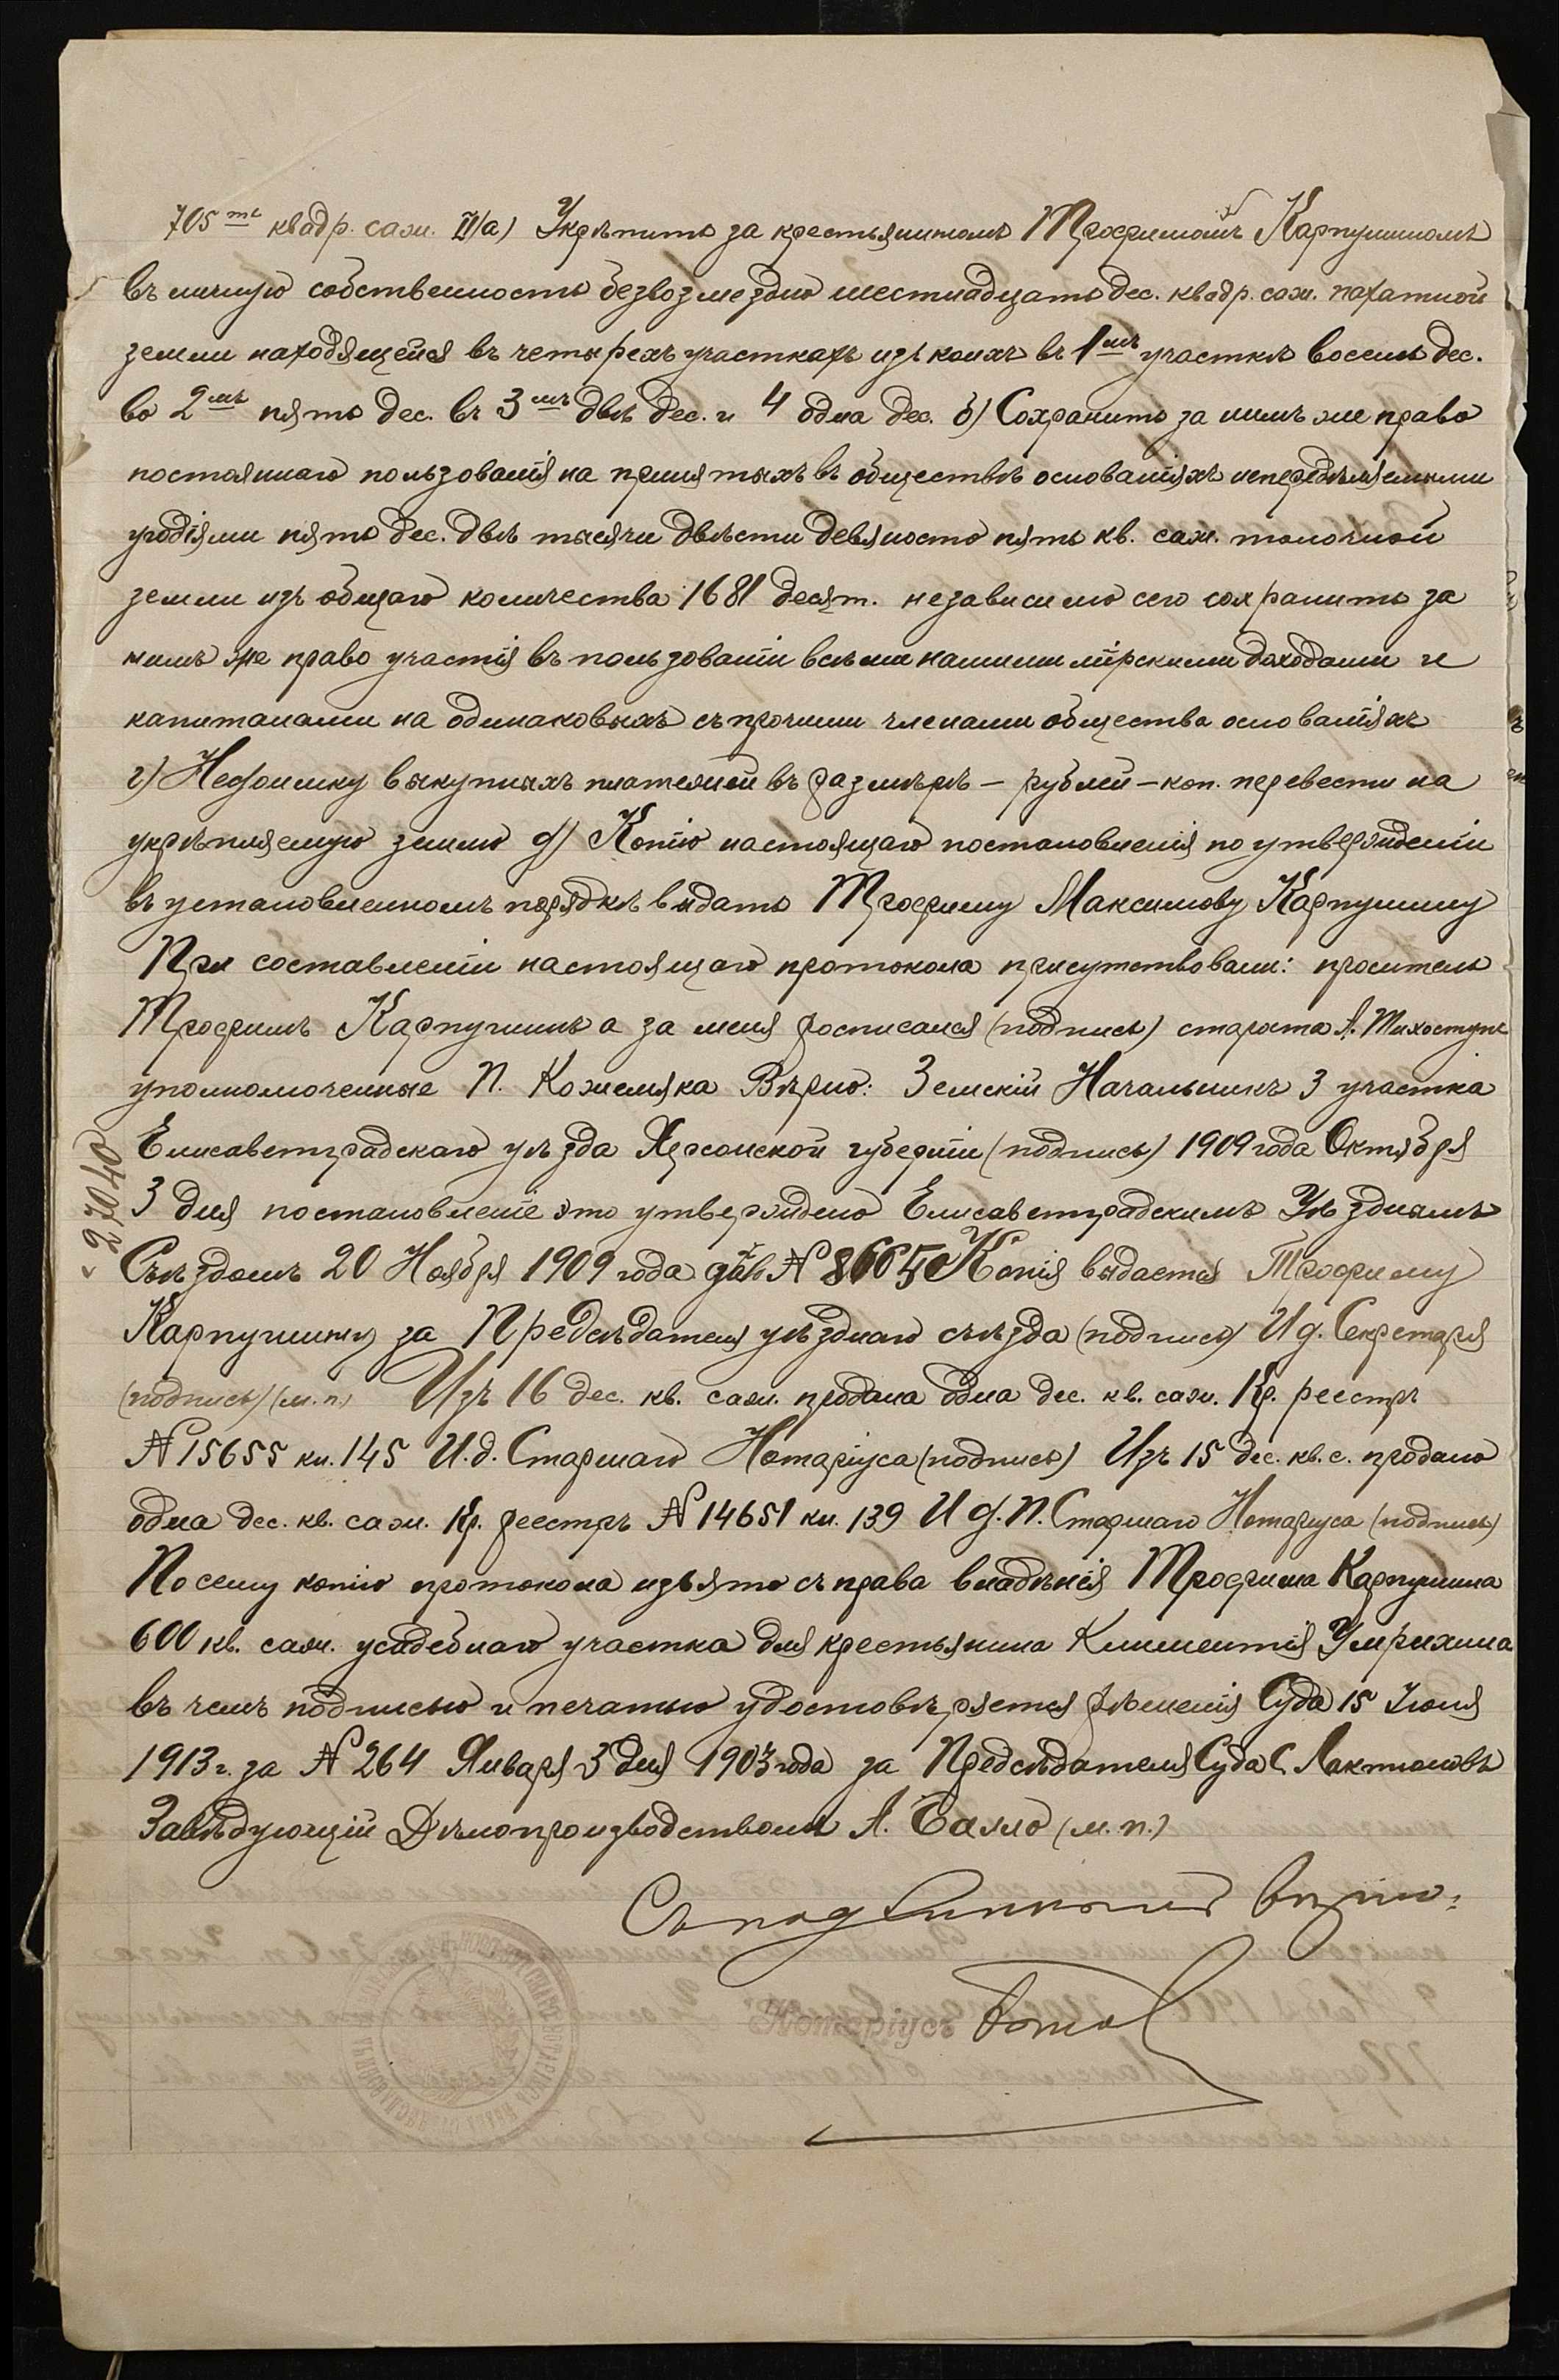 705 ти квадр. саж. II/а) Укрѣпить за крестьяниномъ Трофимомъ Карпушиномъ
въ личную собственность безвозмездно шестнадцать дес. квадр. саж. пахатной
земли находящейся въ четырехъ участкахъ изъ коихъ въ 1мъ участкѣ восемь дес.
во 2мъ пять дес. въ 3мъ двѣ дес. и 4 одна дес. б) Сохранить за нимъ же право
постояннаго пользованія на принятыхъ въ обществѣ основаніяхъ непередѣляемыми
угодіями пять дес. двѣ тысячи двѣсти девяносто пять кв. саж. толочной
земли изъ общаго количества 1681 десят. независимо сего сохранить за
нимъ же право участія въ пользованіи всѣми нашими мірскими доходами и
капиталами на одинаковыхъ съ прочими членами общества основаніяхъ
г) Недоимку выкупныхъ платежей въ размѣрѣ – рублей – коп. перевести на
укрѣпляемую землю д) Копію настоящаго постановленія по утвержденіи
въ установленномъ порядкѣ выдать Трофиму Максимову Карпушину
При составленіи настоящаго протокола присутствовали: проситель
Трофимъ Карпушинъ а за меня росписался (подпись) староста А.
уполномоченные П. Кожемяка Вѣрно: Земскій Начальникъ 3 участка
Елисаветградскаго уѣзда Херсонской губерніи (подпись) 1909 года Октября
3 дня постановленіе это утверждено Елисаветградскимъ Уѣзднымъ
27040
Съѣздомъ 20 Ноября 1909 года дѣло № 8665 Копія выдается Трофиму
Карпушину за Предсѣдателя уѣзднаго съѣзда (подпись) И д. Секретаря
(подпись) (м. п.) Изъ 16 дес. кв. саж. продана одна дес. кв. саж. Кр. реестръ
№ 15655 кн. 145 И. д. Старшаго Нотаріуса (подпись) Изъ 15 дес. кв. с. продано
одна дес. кв. саж. Кр. реестръ № 14651 кн. 139 И д. П. Старшаго Нотаріуса (подпись)
По сему копію протокола изъято съ права владѣнія Трофима Карпушина
600 кв. саж. усадебнаго участка для крестьянина Климентія Умрихина
въ чемъ подписью и печатью удостовѣряется рѣшенія Суда 15 Іюля
1913 г. за № 264 Января 3 дня 1903 года за Предсѣдателя Суда С. Лактионовъ
Завѣдующій Дѣлопроизводствомъ А. Балло (м. п.)
Съ подлиннымъ вѣрно:
Нотаріусъ